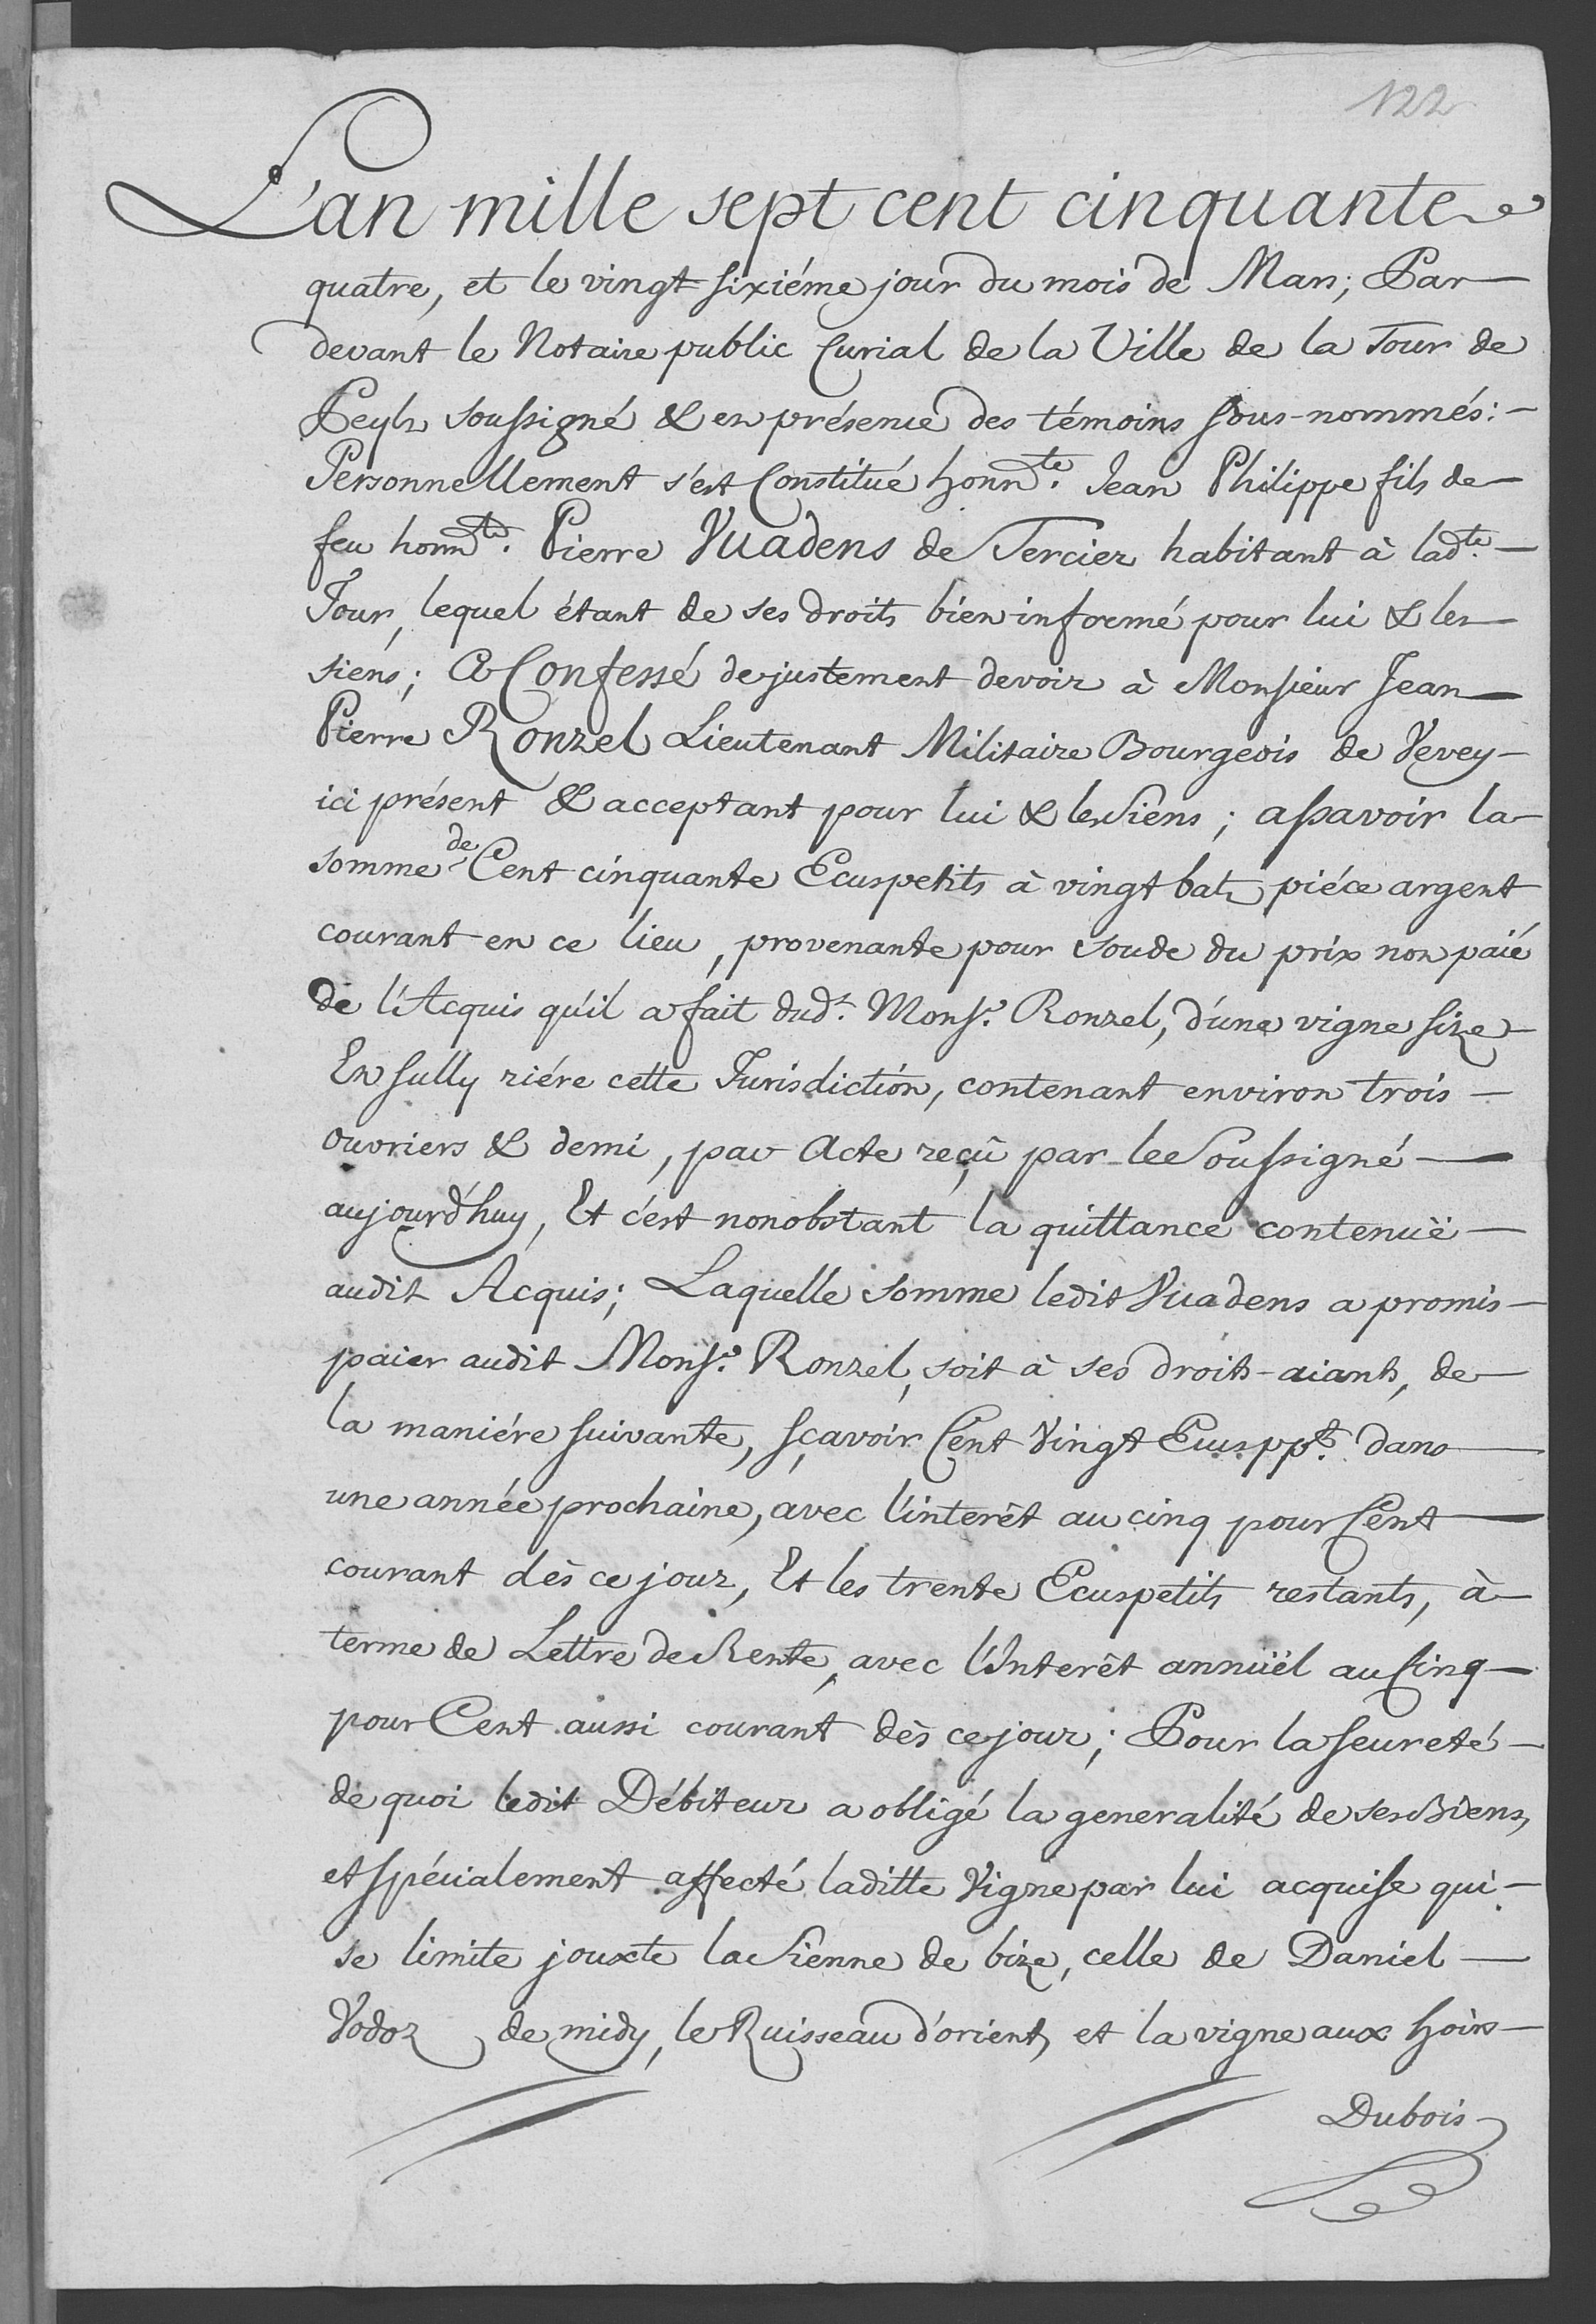 122
L'an mille sept cent cinquante
quatre, et le vingt sixiéme jour du mois de Mars; Par
devant le Notaire public Curial de la Ville de la Tour de
Peylz soussigné & en présence des témoins sous-nommés:
Personnellement s'est Constitué honn.te Jean Philippe fils de
feu honn.te Pierre Vuadens de Tercier habitant à lad.te
Tour, lequel étant de ses droits bien informé pour lui & les
siens; a Confessé de justement devoir à Monsieur Jean
Pierre Ronzel Lieutenant Militaire Bourgeois de Vevey
ici présent & acceptant pour lui & les Siens; assavoir la
somme de Cent cinquante Ecus petits à vingt batz piéce argent
courant en ce lieu, provenante pour soude du prix non paié
de l'Acquis qu'il a fait dud.t Mons.r Ronzel, d'une vigne size
En sully riére cette Jurisdiction, contenant environ trois
ouvriers & demi, par Acte reçû par le Soussigné
aujourd'huy, Et c'est nonobstant la quittance contenuë
audit Acquis; Laquelle somme ledit Vuadens a promis
paier audit Mons.r Ronzel, soit à ses droits-aiants, de
la maniére suivante, sçavoir Cent Vingt Ecus pp.ts dans
une année prochaine, avec l'interêt au cinq pour Cent
courant dès ce jour, Et les trente Ecus petits restants, à
terme de Lettre de Rente, avec l'Interêt annüel au Cinq
pour Cent aussi courant dès ce jour; Pour la seureté
de quoi ledit Débiteur a obligé la generalité de ses Biens,
et spécialement affecté laditte Vigne par lui acquise qui
se limite jouxte la Sienne de bize, celle de Daniel
Vodoz de midy, le Ruisseau d'orient, et la vigne aux hoirs
Dubois